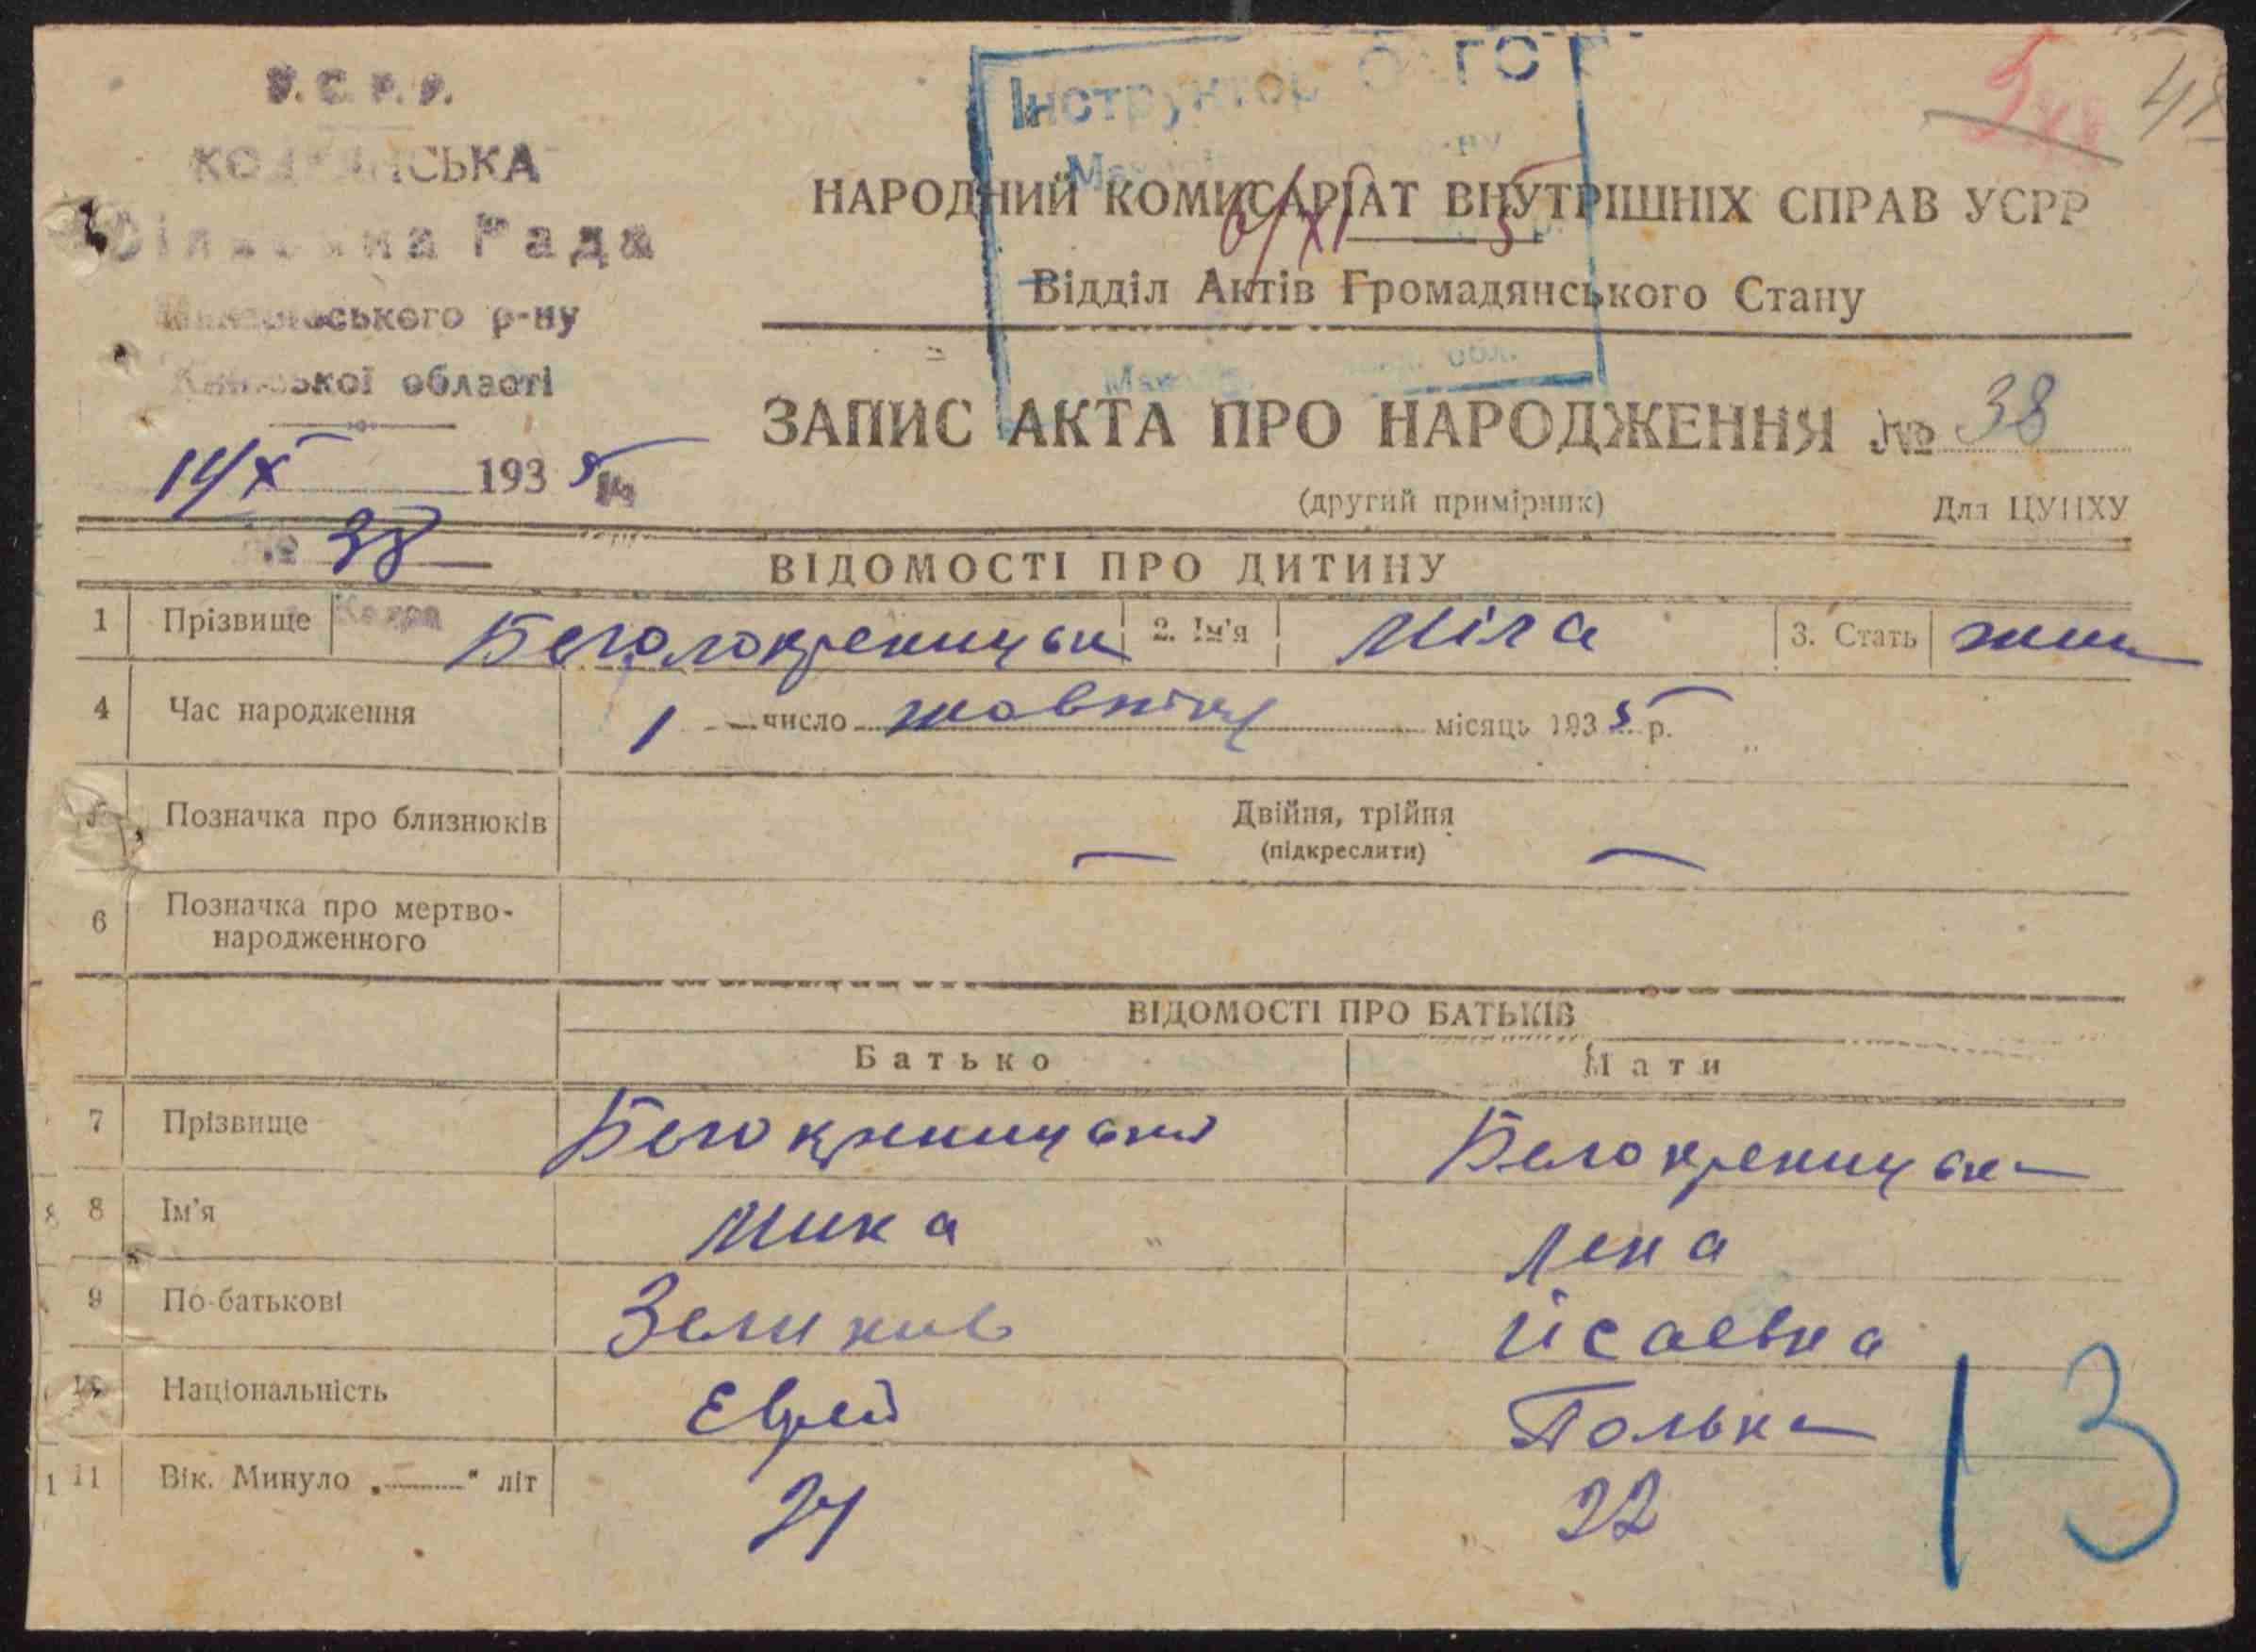 У.С.Р.Р.
Сільська Рада
р-ну
Київської області
14/X 1935
№ 38
Інструктор
48
НАРОДНИЙ КОМИСАРІАТ ВНУТРІШНІХ СПРАВ УСРР
6/XI 5
Відділ Актів Громадянського Стану
обл.
ЗАПИС АКТА ПРО НАРОДЖЕННЯ № 38
(другий примірник) Для ЦУНХУ
ВІДОМОСТІ ПРО ДИТИНУ
1 Прізвище 2. Ім'я Міла 3. Стать жін
4 Час народження 1 число жовтня місяць 1935 р.
5 Позначка про близнюків Двійня, трійня
(підкреслити)
6 Позначка про мертво-
народженного
ВІДОМОСТІ ПРО БАТЬКІВ
Батько Мати
7 Прізвище Белокреницька
8 Ім'я Мика Лена
9 По-батькові Исаевна
10 Національність Еврей Полька
11 Вік. Минуло „ " літ 24 22
13